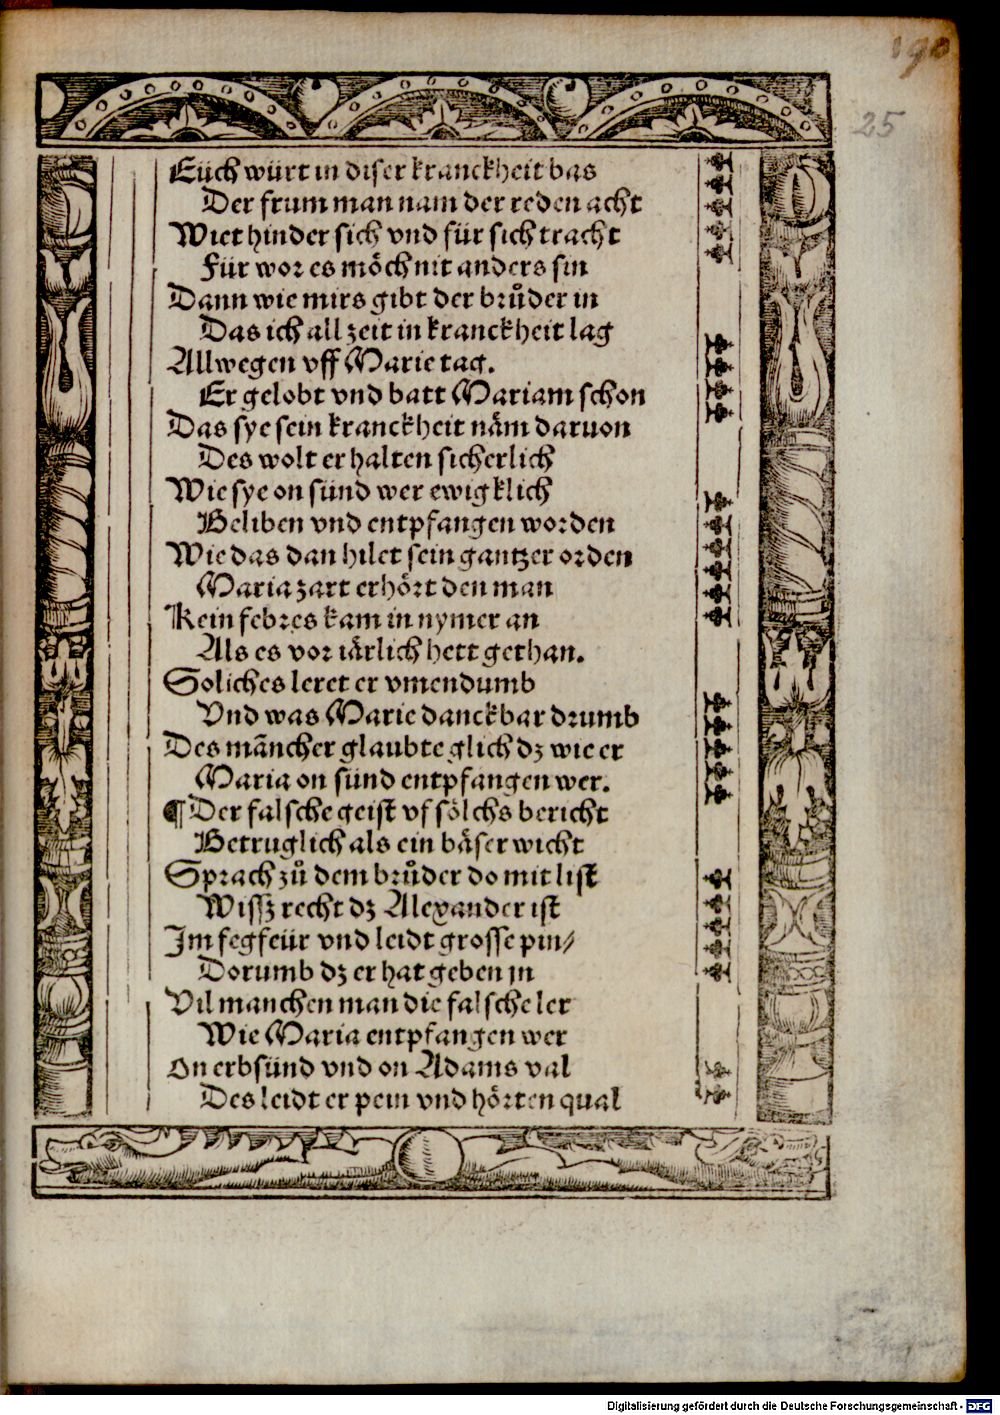 190
25
Eüch würt in diser kranckheit bas
Der frum man nam der reden acht
Wiet hinder sich vnd für sich tracht
Für wor es möch nit anders sin
Dann wie mirs gibt der brůder in
Das ich all zeit in kranckheit lag
Allwegen vff Marie tag.
Er gelobt vnd batt Mariam schon
Das sye sein kranckheit näm daruon
Des wolt er halten sicherlich
Wie sye on sünd wer ewigklich
Beliben vnd entpfangen worden
Wie das dan hilet sein gantzer orden
Maria zart erhört den man
Kein febres kam in nymer an
Als es vor iärlich hett gethan.
Soliches leret er vmendumb
Vnd was Marie danckbar drumb
Des mãncher glaubte glich dz wie er
Maria on sünd entpfangen wer.
¶ Der falsche geist vf sölchs bericht
Betruglich als ein bäser wicht
Sprach zů dem brůder do mit list
Wissz recht dz Alexander ist
Im fegfeür vnd leidt grosse pin/
Dorumb dz er hat geben in
Vil manchen man die falsche ler
Wie Maria entpfangen wer
On erbsünd vnd on Adams val
Des leidt er pein vnd hörten qual
Digitalisierung gefördert durch die Deutsche Forschungsgemeinschaft - DFG